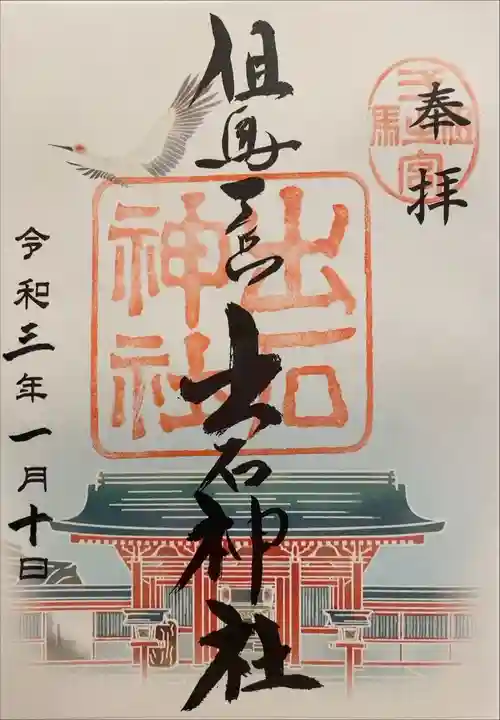 奉拝
一宮
但馬
但馬一宮出石神社
出石
神社
令和三年一月十日